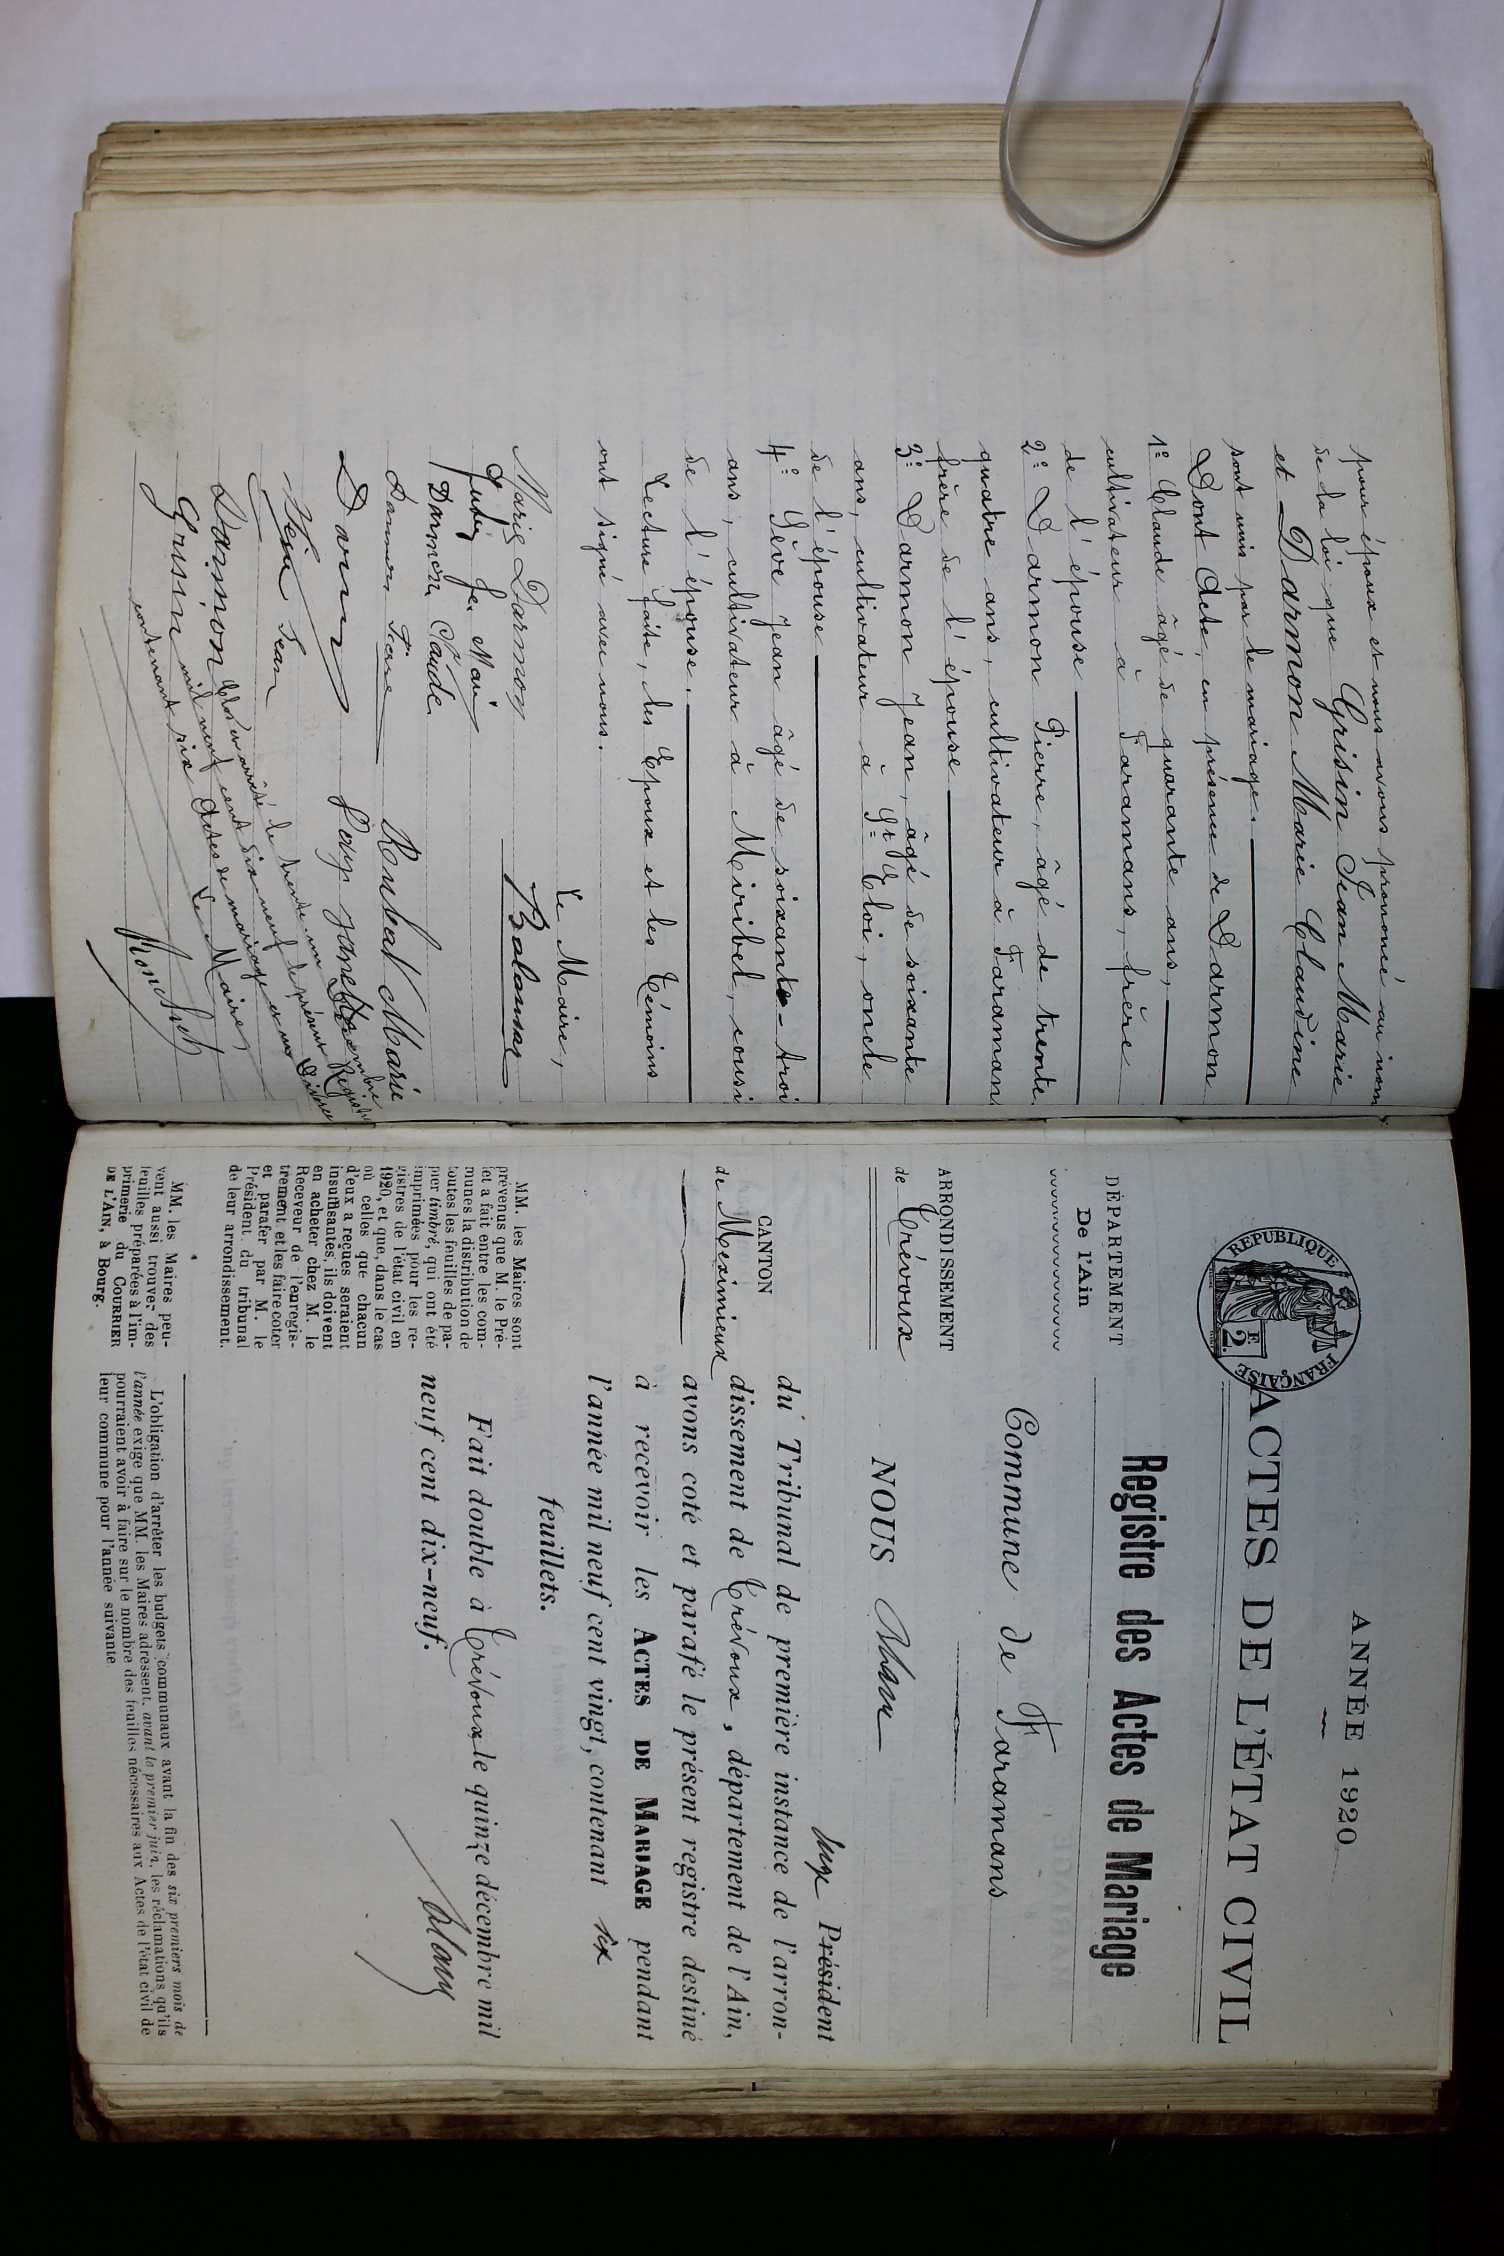 pour époux et nous avons prononcé au nom
de la loi que Grisin Jean Marie
et Darmon Marie Claudine
sont unis par le mariage.
Dont Acte, en présence de Darmon
1º Claude âgé de quarante ans,
cultivateur à Faramans, frère
de l'épouse
2º Darmon Pierre, âgé de trente
quatre ans, cultivateur à Faramans
frère de l'épouse
3º Darmon Jean, âgé de soixante
ans, cultivateur à St Eloi, oncle
de l'épouse
4º Sève Jean âgé de soixante-troi
ans, cultivateur à Miribel, cousi
de l'épouse.
Lecture faite, les Epoux et les Témoins
ont signé avec nous.
Le Maire,
Marie Darmon
Darmon Claude
Marie
Jean
Darmon
Grisin
Clos et arrêté le trente un Décembre
mil neuf cent dix neuf le présent Registre
contenant six Actes de mariage et un Divorce
Le Maire,
ANNÉE 1920
REPUBLIQUE FRANÇAISE
2 F.
ACTES DE L'ÉTAT CIVIL
Registre des Actes de Mariage
DÉPARTEMENT
De l'Ain
Commune de Faramans
ARRONDISSEMENT
de Trévoux
NOUS
Juge Président
du Tribunal de première instance de l'arron-
dissement de Trévoux, département de l'Ain,
avons coté et parafé le présent registre destiné
à recevoir les ACTES DE MARIAGE pendant
l'année mil neuf cent vingt, contenant six
feuillets.
Fait double à Trévoux le quinze décembre mil
neuf cent dix-neuf.
CANTON
de Meximieux
MM. les Maires sont
prévenus que M. le Pré-
fet a fait entre les com-
munes la distribution de
toutes les feuilles de pa-
pier timbré, qui ont été
imprimées pour les re-
gistres de l'état civil en
1920, et que, dans le cas
où celles que chacun
d'eux a reçues seraient
insuffisantes, ils doivent
en acheter chez M. le
Receveur de l'enregis-
trement et les faire coter
et parafer par M. le
Président du tribunal
de leur arrondissement.
MM. les Maires peu-
vent aussi trouver des
feuilles préparées à l'im-
primerie du COURRIER
DE L'AIN, à Bourg.
L'obligation d'arrêter les budgets communaux avant la fin des six premiers mois de
l'année exige que MM. les Maires adressent, avant le premier juin, les réclamations qu'ils
pourraient avoir à faire sur le nombre des feuilles nécessaires aux Actes de l'état civil de
leur commune pour l'année suivante.